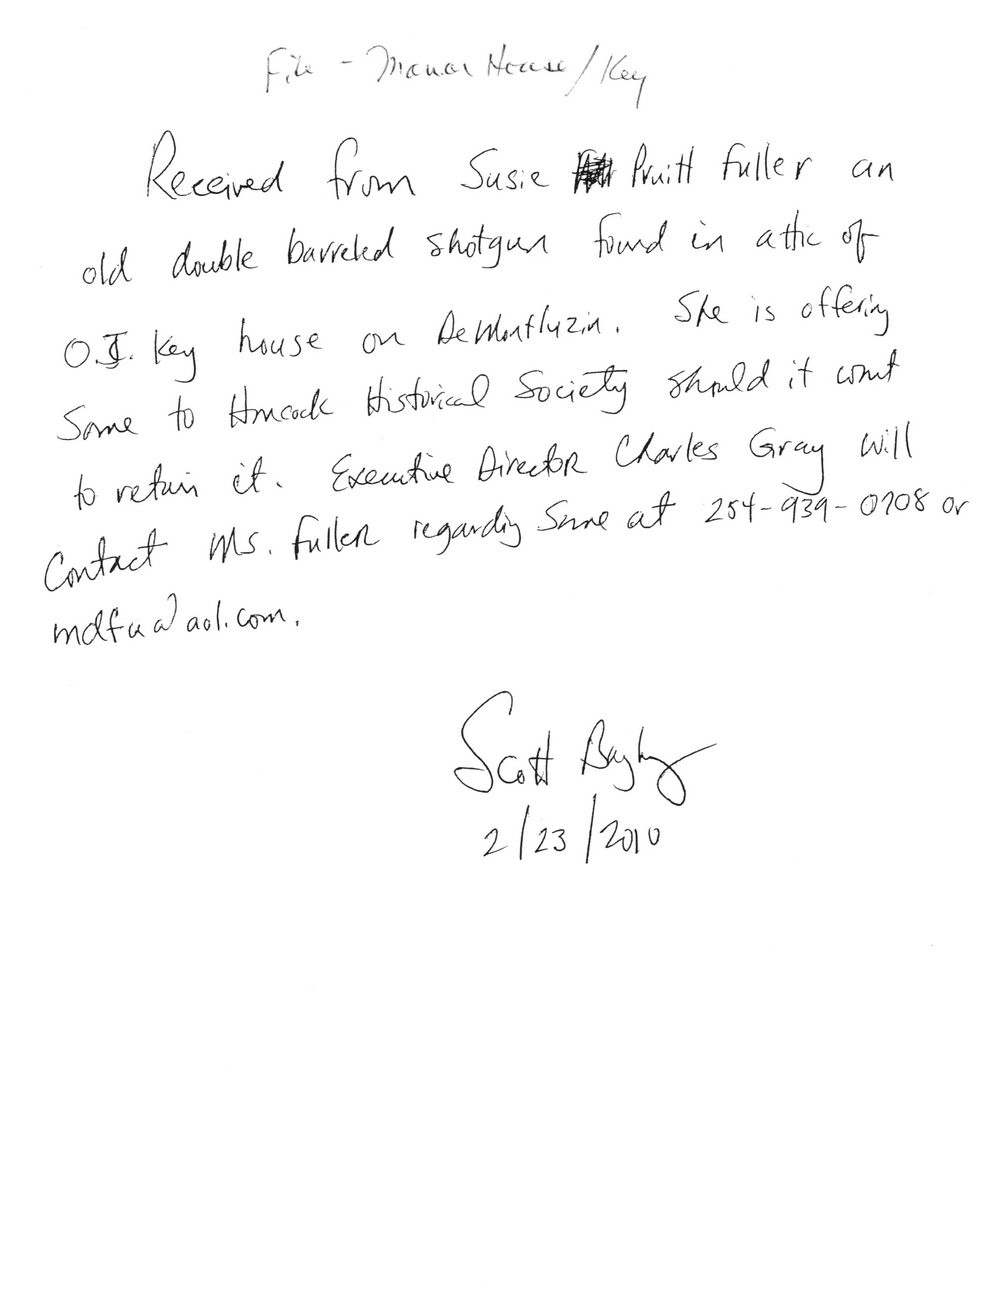 File - Manor House/Key
Received from Susie Pruitt Fuller an
old double barreled shotgun found in attic of
O.J. Key house on DeMontluzin. She is offering
Same to Hancock Historical Society should it want
to retain it. Executive Director Charles Gray will
Contact Ms. Fuller regarding Same at 254-939-0708 or
mdfu@aol.com.
Scott Bagley
2/23/2010